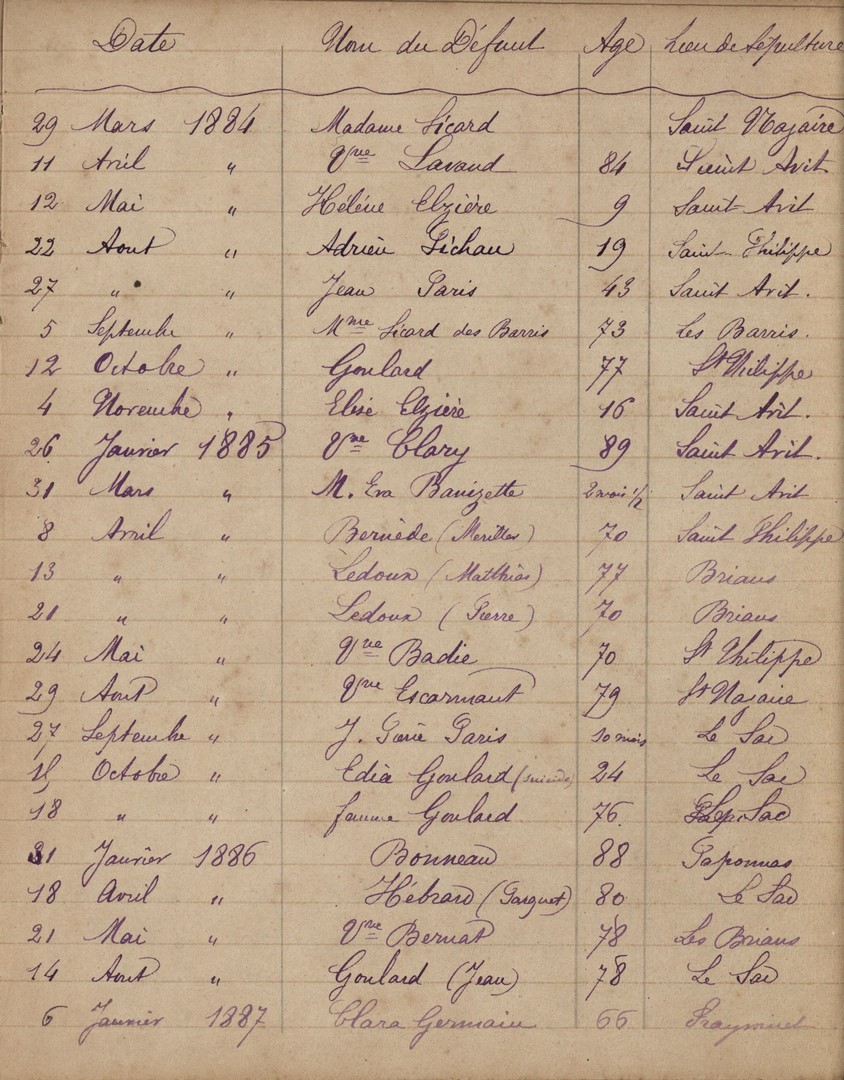 Date Nom du Défunt Age Lieu de Sépulture
29 Mars 1884 Madame Sicard Saint Nazaire
11 Avril " Vve Lavaud 84 Saint Avit
12 Mai " Hélène Elzière 9 Saint Avit
22 Aout " Adrien Pichau 19 Saint Philippe
27 " " Jean Paris 43 Saint Avit.
5 Septembre " Mme Sicard des Barris 73 Les Barris.
12 Octobre " Goulard 77 St Philippe
4 Novembre " Elise Elzière 16 Saint Avit.
26 Janvier 1885 Vve Clary 89 Saint Avit.
31 Mars " M. Eva Banizette 2 mois 1/2 Saint Avit
8 Avril " Bernède 70 Saint Philippe
13 " " Ledoux (Matthias) 77 Brians
21 " " Ledoux (Pierre) 70 Brians
24 Mai " Vve Badie 70 St Philippe
29 Aout " Vve Escarmant 79 St Nazaire
27 Septembre " J. Paris 10 mois Le Sac
15 Octobre " Edia Goulard (suicide) 24 Le Sac
18 " " femme Goulard 76. Le Sac
31 Janvier 1886 Bonneau 88 Paponnas
18 Avril " Hébrard 80 Le Sac
21 Mai " Vve Bernat 78 Les Brians
14 Aout " Goulard (Jean) 78 Le Sac
6 Janvier 1887 Clara Germain 66